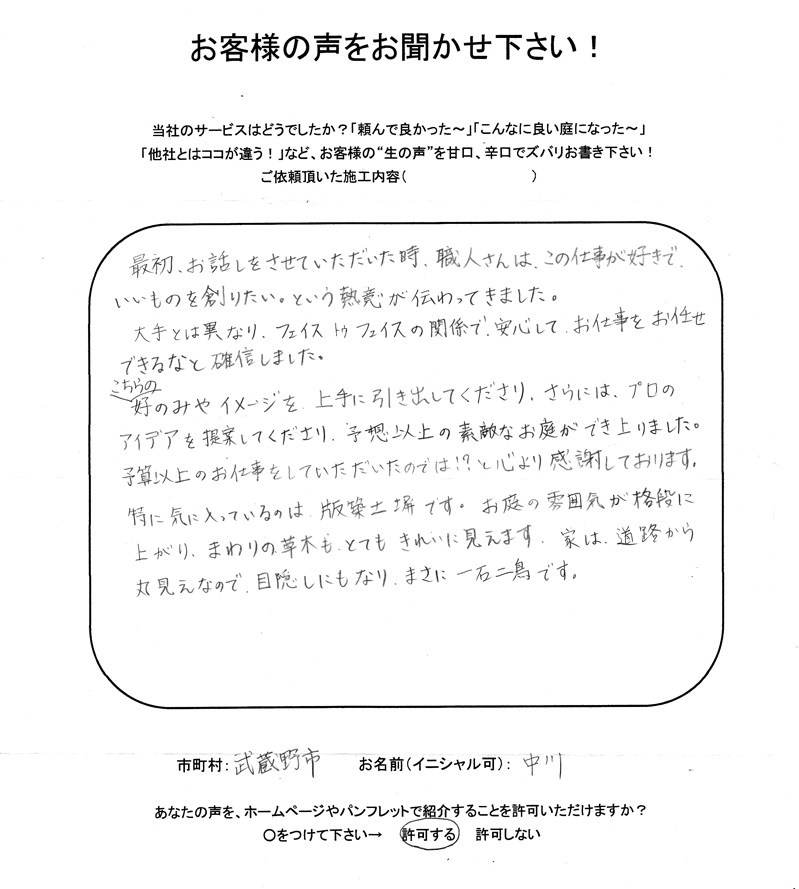 お客様の声をお聞かせ下さい！
当社のサービスはどうでしたか？「頼んで良かった～」「こんなに良い庭になった～」
「他社とはココが違う！」など、お客様の“生の声”を甘口、辛口でズバリお書き下さい！
ご依頼頂いた施工内容（　　　　　　　　　）
最初、お話しをさせていただいた時、職人さんは、この仕事が好きで、
いいものを創りたい。という熱意が伝わってきました。
大手とは異なり、フェイス トゥ フェイスの関係で、安心して、お仕事をお任せ
できるなと確信しました。
こちらの
好のみや イメージを、上手に引き出してくださり、さらには、プロの
アイデアを提案してくださり、予想以上の素敵なお庭ができ上りました。
予算以上のお仕事をしていただいたのでは!?と心より感謝しております。
特に気に入っているのは、版築土塀です。お庭の雰囲気が格段に
上がり、まわりの草木も、とても きれいに見えます。家は、道路から
丸見えなので、目隠しにもなり、まさに一石二鳥です。
市町村：武蔵野市　お名前（イニシャル可）：中川
あなたの声を、ホームページやパンフレットで紹介することを許可いただけますか？
○をつけて下さい→　許可する　許可しない